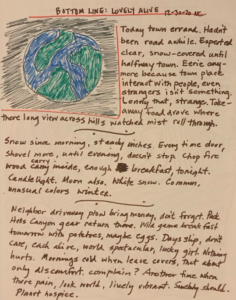 BOTTOM LINE: LOVELY ALIVE 12-30-20
Today town errand. Hadn't
been road awhile. Expected
clear, snow-covered until
halfway town. Eerie any-
more because town place
interact with people, even
strangers isn't something.
Lonely that, strange. Take-
away food drove where
there long view across hills watched mist roll through.
Snow since morning, steady inches. Every time door,
shovel more, until evening, doesn't stop. Chop fire
wood carry easily, enough breakfast, tonight.
Candlelight. Moon also. White snow. Common,
unusual colors winter.
Neighbor driveway plow bring money, don't forget. Pack
Hells Canyon gear return home. Wild game breakfast
tomorrow with potatoes, maybe eggs. Days slip, don't
care, each alive, world spectacular, lucky girl nothing
hurts. Mornings cold when leave covers, that about
only discomfort. Complain? Another time when
there pain, look world, lively vibrant. Somebody should.
Planet hospice.